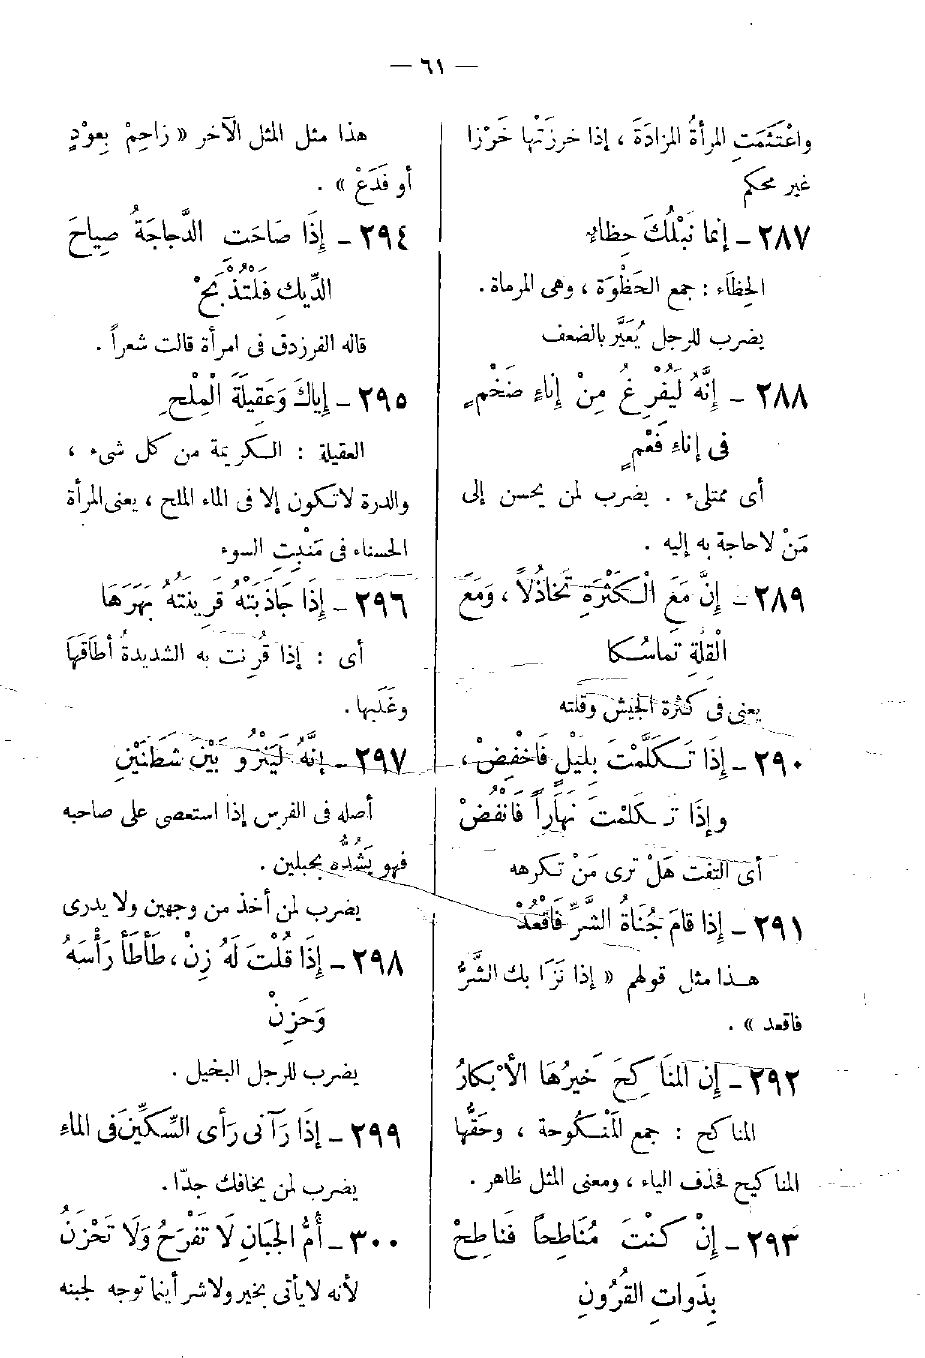 — ٦١ —
واعْتَثَمَتِ المرأةُ المزادَةَ ، إذا خرزَتْها خَرْزا
غير محكم
٢٨٧ – إنما نَبْلُكَ حِظاءٍ
الحِظَاء : جمع الحَظْوَة ، وهى المرماة .
يضرب للرجل يُعَيَّر بالضعف
٢٨٨ – إنَّهُ لَيُفْرِغُ مِنْ إناءٍ ضَخْمٍ
فى إناءٍ فَعْمٍ
أى ممتلىء . يضرب لمن يحسن إلى
مَنْ لاحاجة به إليه .
٢٨٩ – إنَّ مَعَ الْكَثْرَةِ تَخَاذُلاً ، وَمَعَ
الْقِلَّةِ تَماسُكا
يعنى فى كثرة الجيش وقلته
٢٩٠ – إذَا تَكَلَّمْتَ بِلَيْلٍ فَاخْفِضْ ،
وإذَا تَكَلَّمْتَ نَهَاراً فَانْفُضْ
أى التفت هَلْ ترى مَنْ تكرهه
٢٩١ – إذا قامَ جُنَاةُ الشَّرِّ فَاقْعُدْ
هـذا مثل قولهم « إذا نَزَا بك الشَّرُّ
فاقعد » .
٢٩٢ – إن المناَكِحَ خَيرُهَا الأَبْكارُ
المناكح : جمع المَنْكوحة ، وحَقُّها
المناكيح فحذف الياء ، ومعنى المثل ظاهر .
٢٩٣ – إنْ كُنْتَ مُنَاطِحاً فَناطِحْ
بِذَواتِ القُرُونِ
هذا مثل المثل الآخر « زاحِمْ بِعوْدٍ
أو فَدَعْ » .
٢٩٤ – إذَا صَاحَتِ الدَّجاجَةُ صِياحَ
الدِّيكِ فَلْتُذْبَحْ
قاله الفرزدق فى امرأة قالت شعراً .
٢٩٥ – إياكَ وَعَقِيلَةَ الْمِلْحِ
العقيلة : الكريمة من كل شىء ،
والدرة لاتكون إلا فى الماء الملح ، يعنى المرأة
الحسناء فى مَنْبِتِ السوء
٢٩٦ – إذَا جَاذَبَتْهُ قَرِينَتُهُ بَهَرَهَا
أى : إذا قُرِنت به الشديدةُ أطاقَها
وغَلَبها .
٢٩٧ – إنَّهُ لَيَنْزُو بَيْنَ شَطَنَيْنِ
أصله فى الفرس إذا استعصى على صاحبه
فهو يَشُدُّه بحبلين .
يضرب لمن أخذ من وجهين ولا يدرى
٢٩٨ – إذَا قُلْتَ لَهُ زِنْ ، طَأطَأَ رَأْسَهُ
وَحَزِنْ
يضرب للرجل البخيل .
٢٩٩ – إذَا رَآنى رَأى السِّكِّينَ فى الماءِ
يضرب لمن يخافك جدّا .
٣٠٠ – أُمُّ الجَبَانِ لَا تَفْرَحُ وَلَا تَحْزَنُ
لأنه لايأتى بخير ولاشر أينما توجه لجبنه